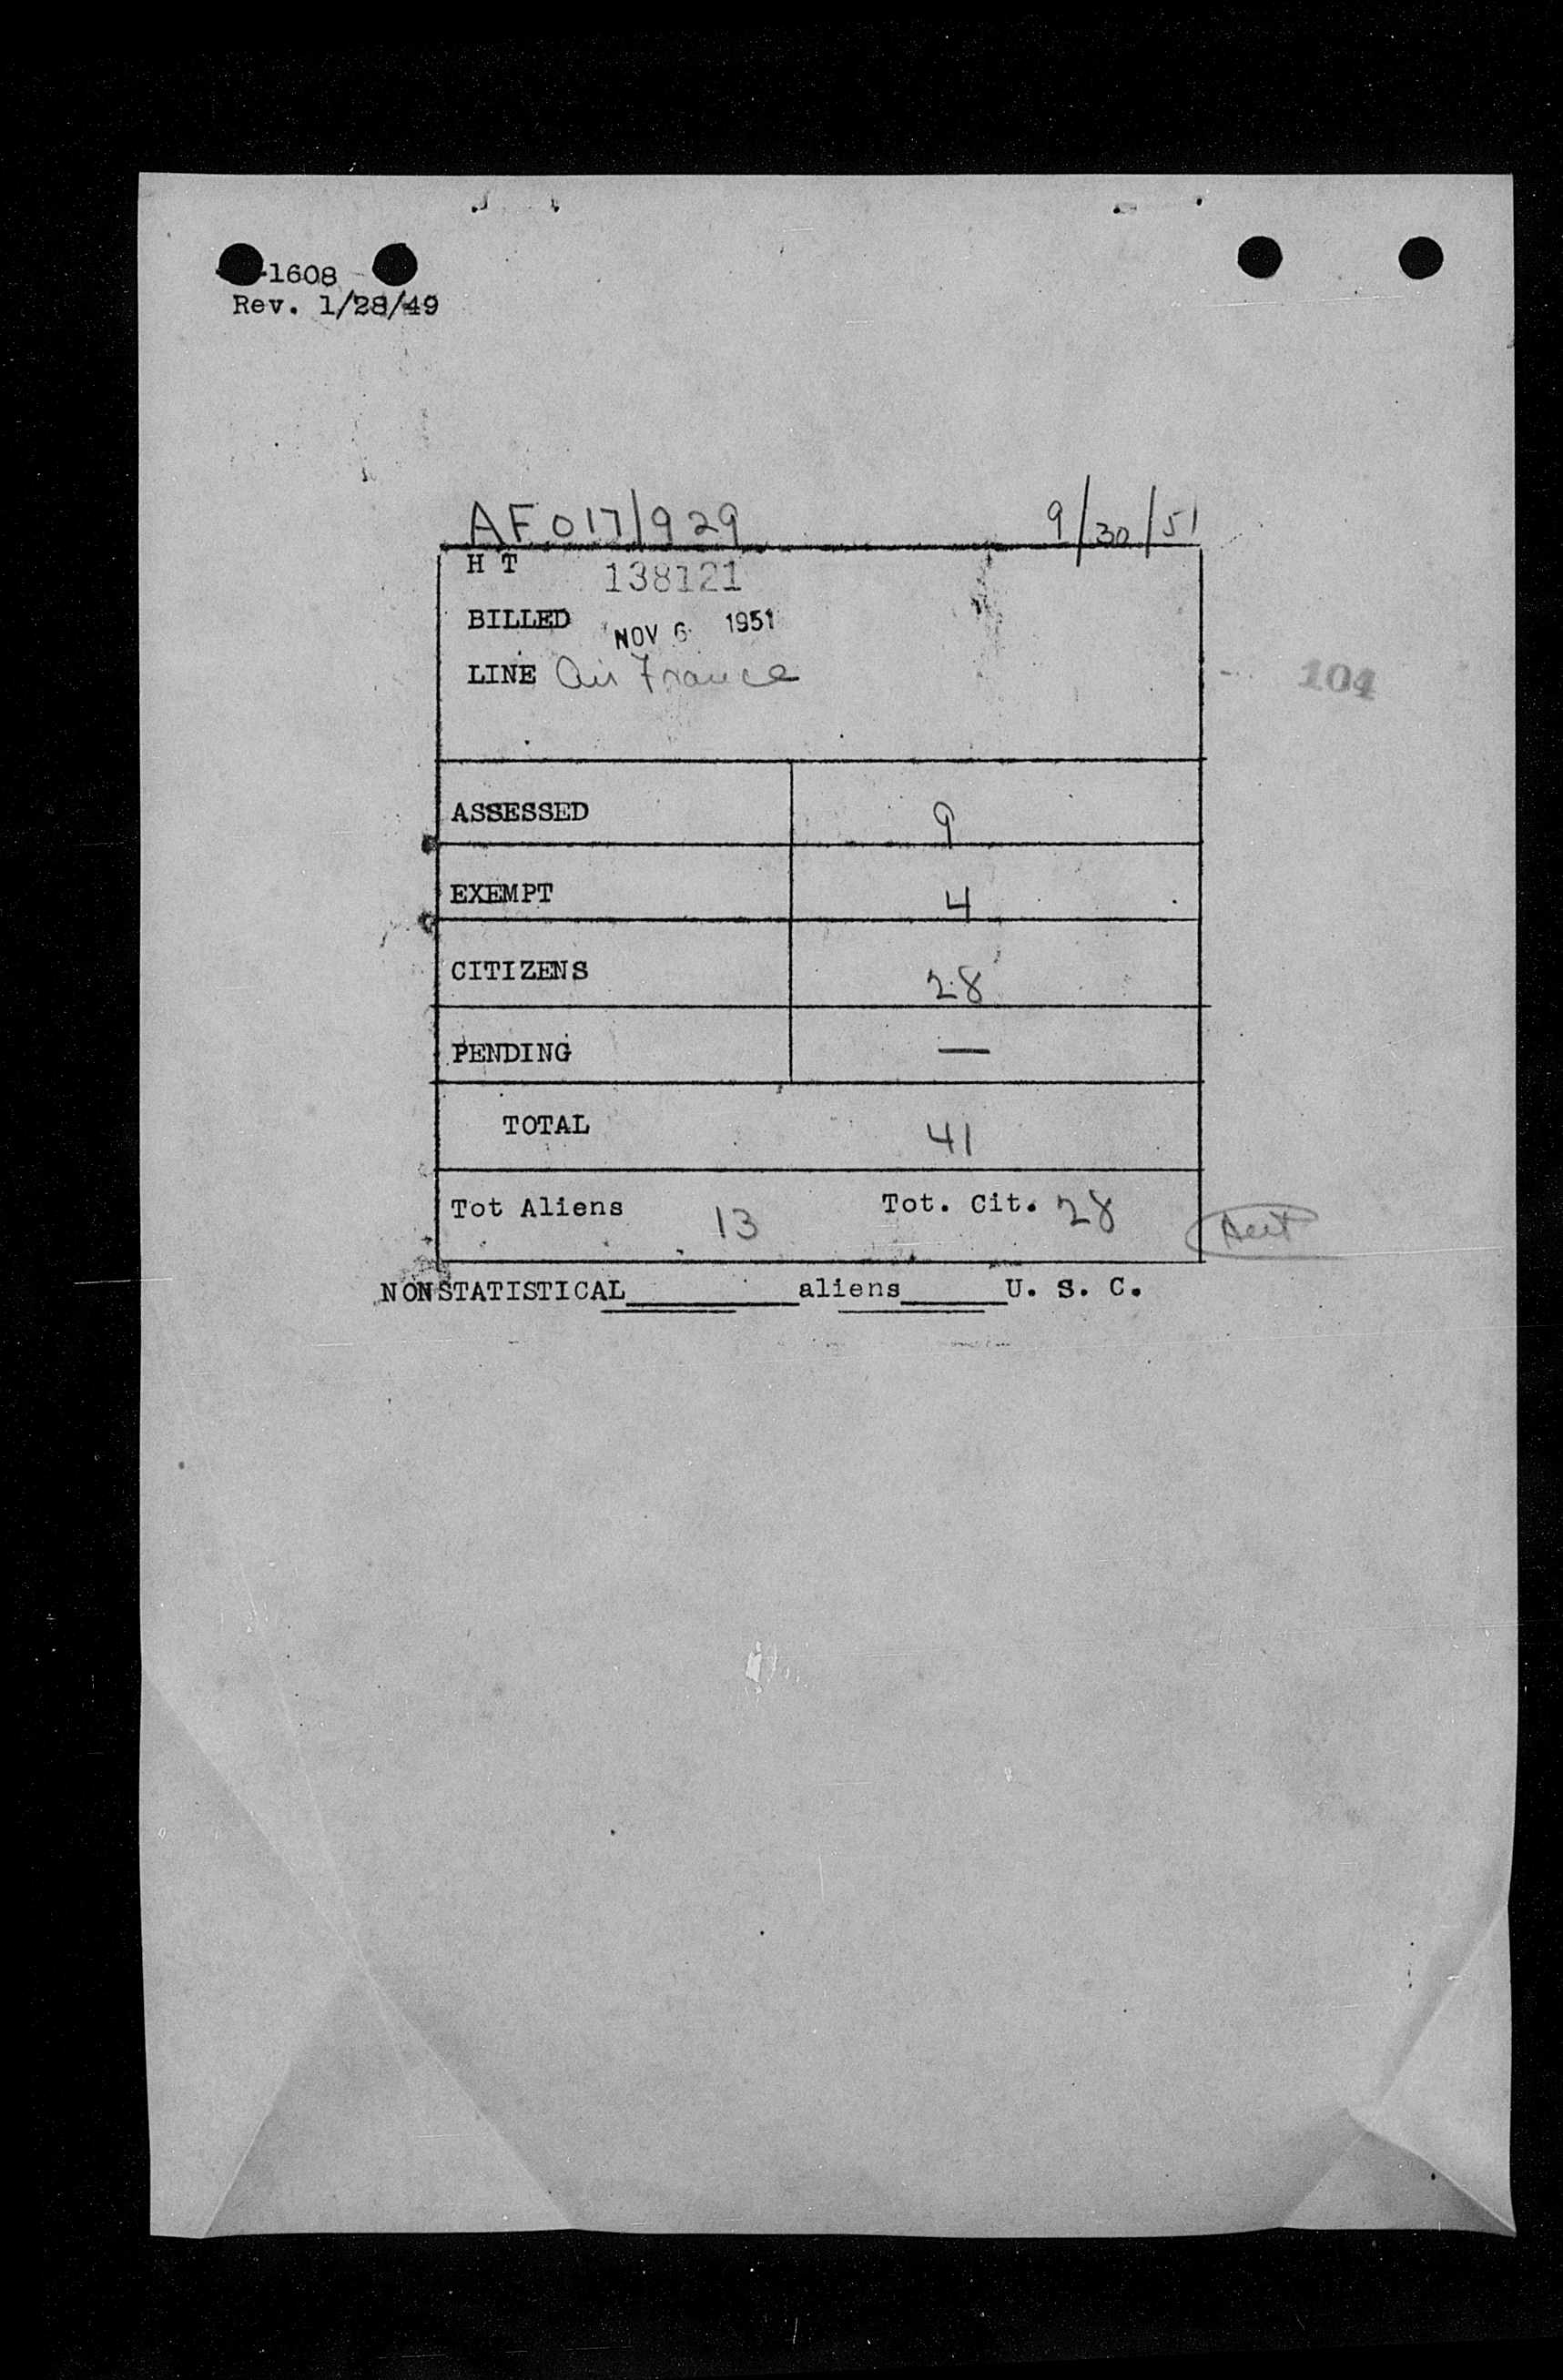 -1608
Rev. 1/28/49
AF 017/929 9/30/51
H T 138121
BILLED NOV 6 1951
LINE Air France
104
ASSESSED 9
EXEMPT 4
CITIZENS 28
PENDING —
TOTAL 41
Tot Aliens 13 Tot. Cit. 28
NONSTATISTICAL________aliens_____U. S. C.